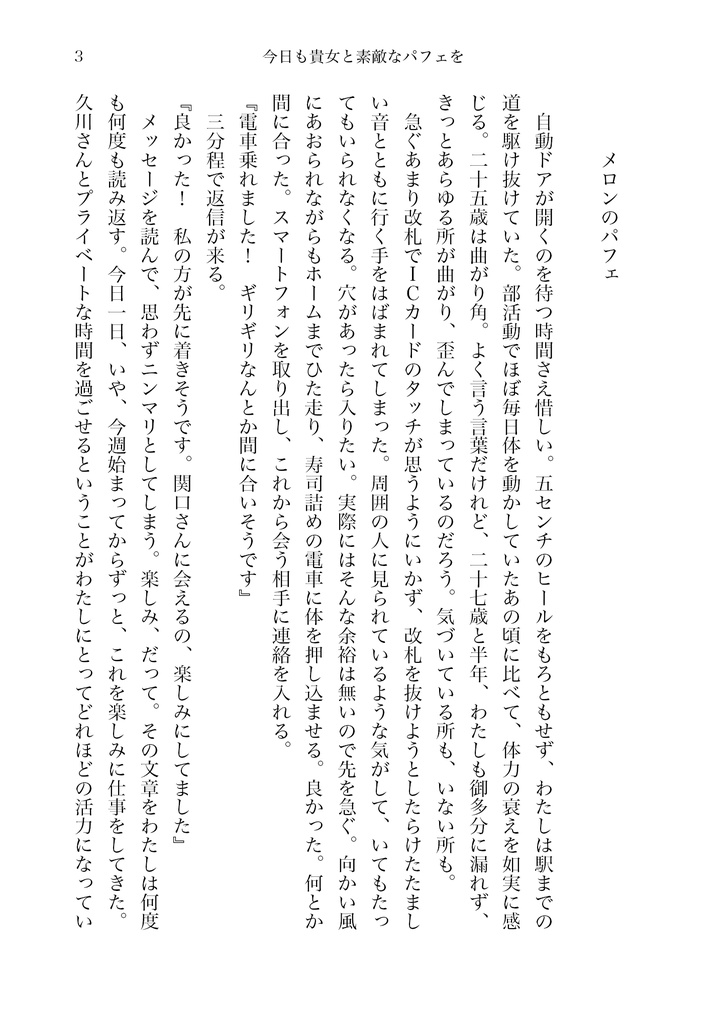 3
今日も貴女と素敵なパフェを
メロンのパフェ
　自動ドアが開くのを待つ時間さえ惜しい。五センチのヒールをもろともせず、わたしは駅までの
道を駆け抜けていた。部活動でほぼ毎日体を動かしていたあの頃に比べて、体力の衰えを如実に感
じる。二十五歳は曲がり角。よく言う言葉だけれど、二十七歳と半年、わたしも御多分に漏れず、
きっとあらゆる所が曲がり、歪んでしまっているのだろう。気づいている所も、いない所も。
　急ぐあまり改札でＩＣカードのタッチが思うようにいかず、改札を抜けようとしたらけたたまし
い音とともに行く手をはばまれてしまった。周囲の人に見られているような気がして、いてもたっ
てもいられなくなる。穴があったら入りたい。実際にはそんな余裕は無いので先を急ぐ。向かい風
にあおられながらもホームまでひた走り、寿司詰めの電車に体を押し込ませる。良かった。何とか
間に合った。スマートフォンを取り出し、これから会う相手に連絡を入れる。
『電車乗れました！　ギリギリなんとか間に合いそうです』
　三分程で返信が来る。
『良かった！　私の方が先に着きそうです。関口さんに会えるの、楽しみにしてました』
　メッセージを読んで、思わずニンマリとしてしまう。楽しみ、だって。その文章をわたしは何度
も何度も読み返す。今日一日、いや、今週始まってからずっと、これを楽しみに仕事をしてきた。
久川さんとプライベートな時間を過ごせるということがわたしにとってどれほどの活力になってい